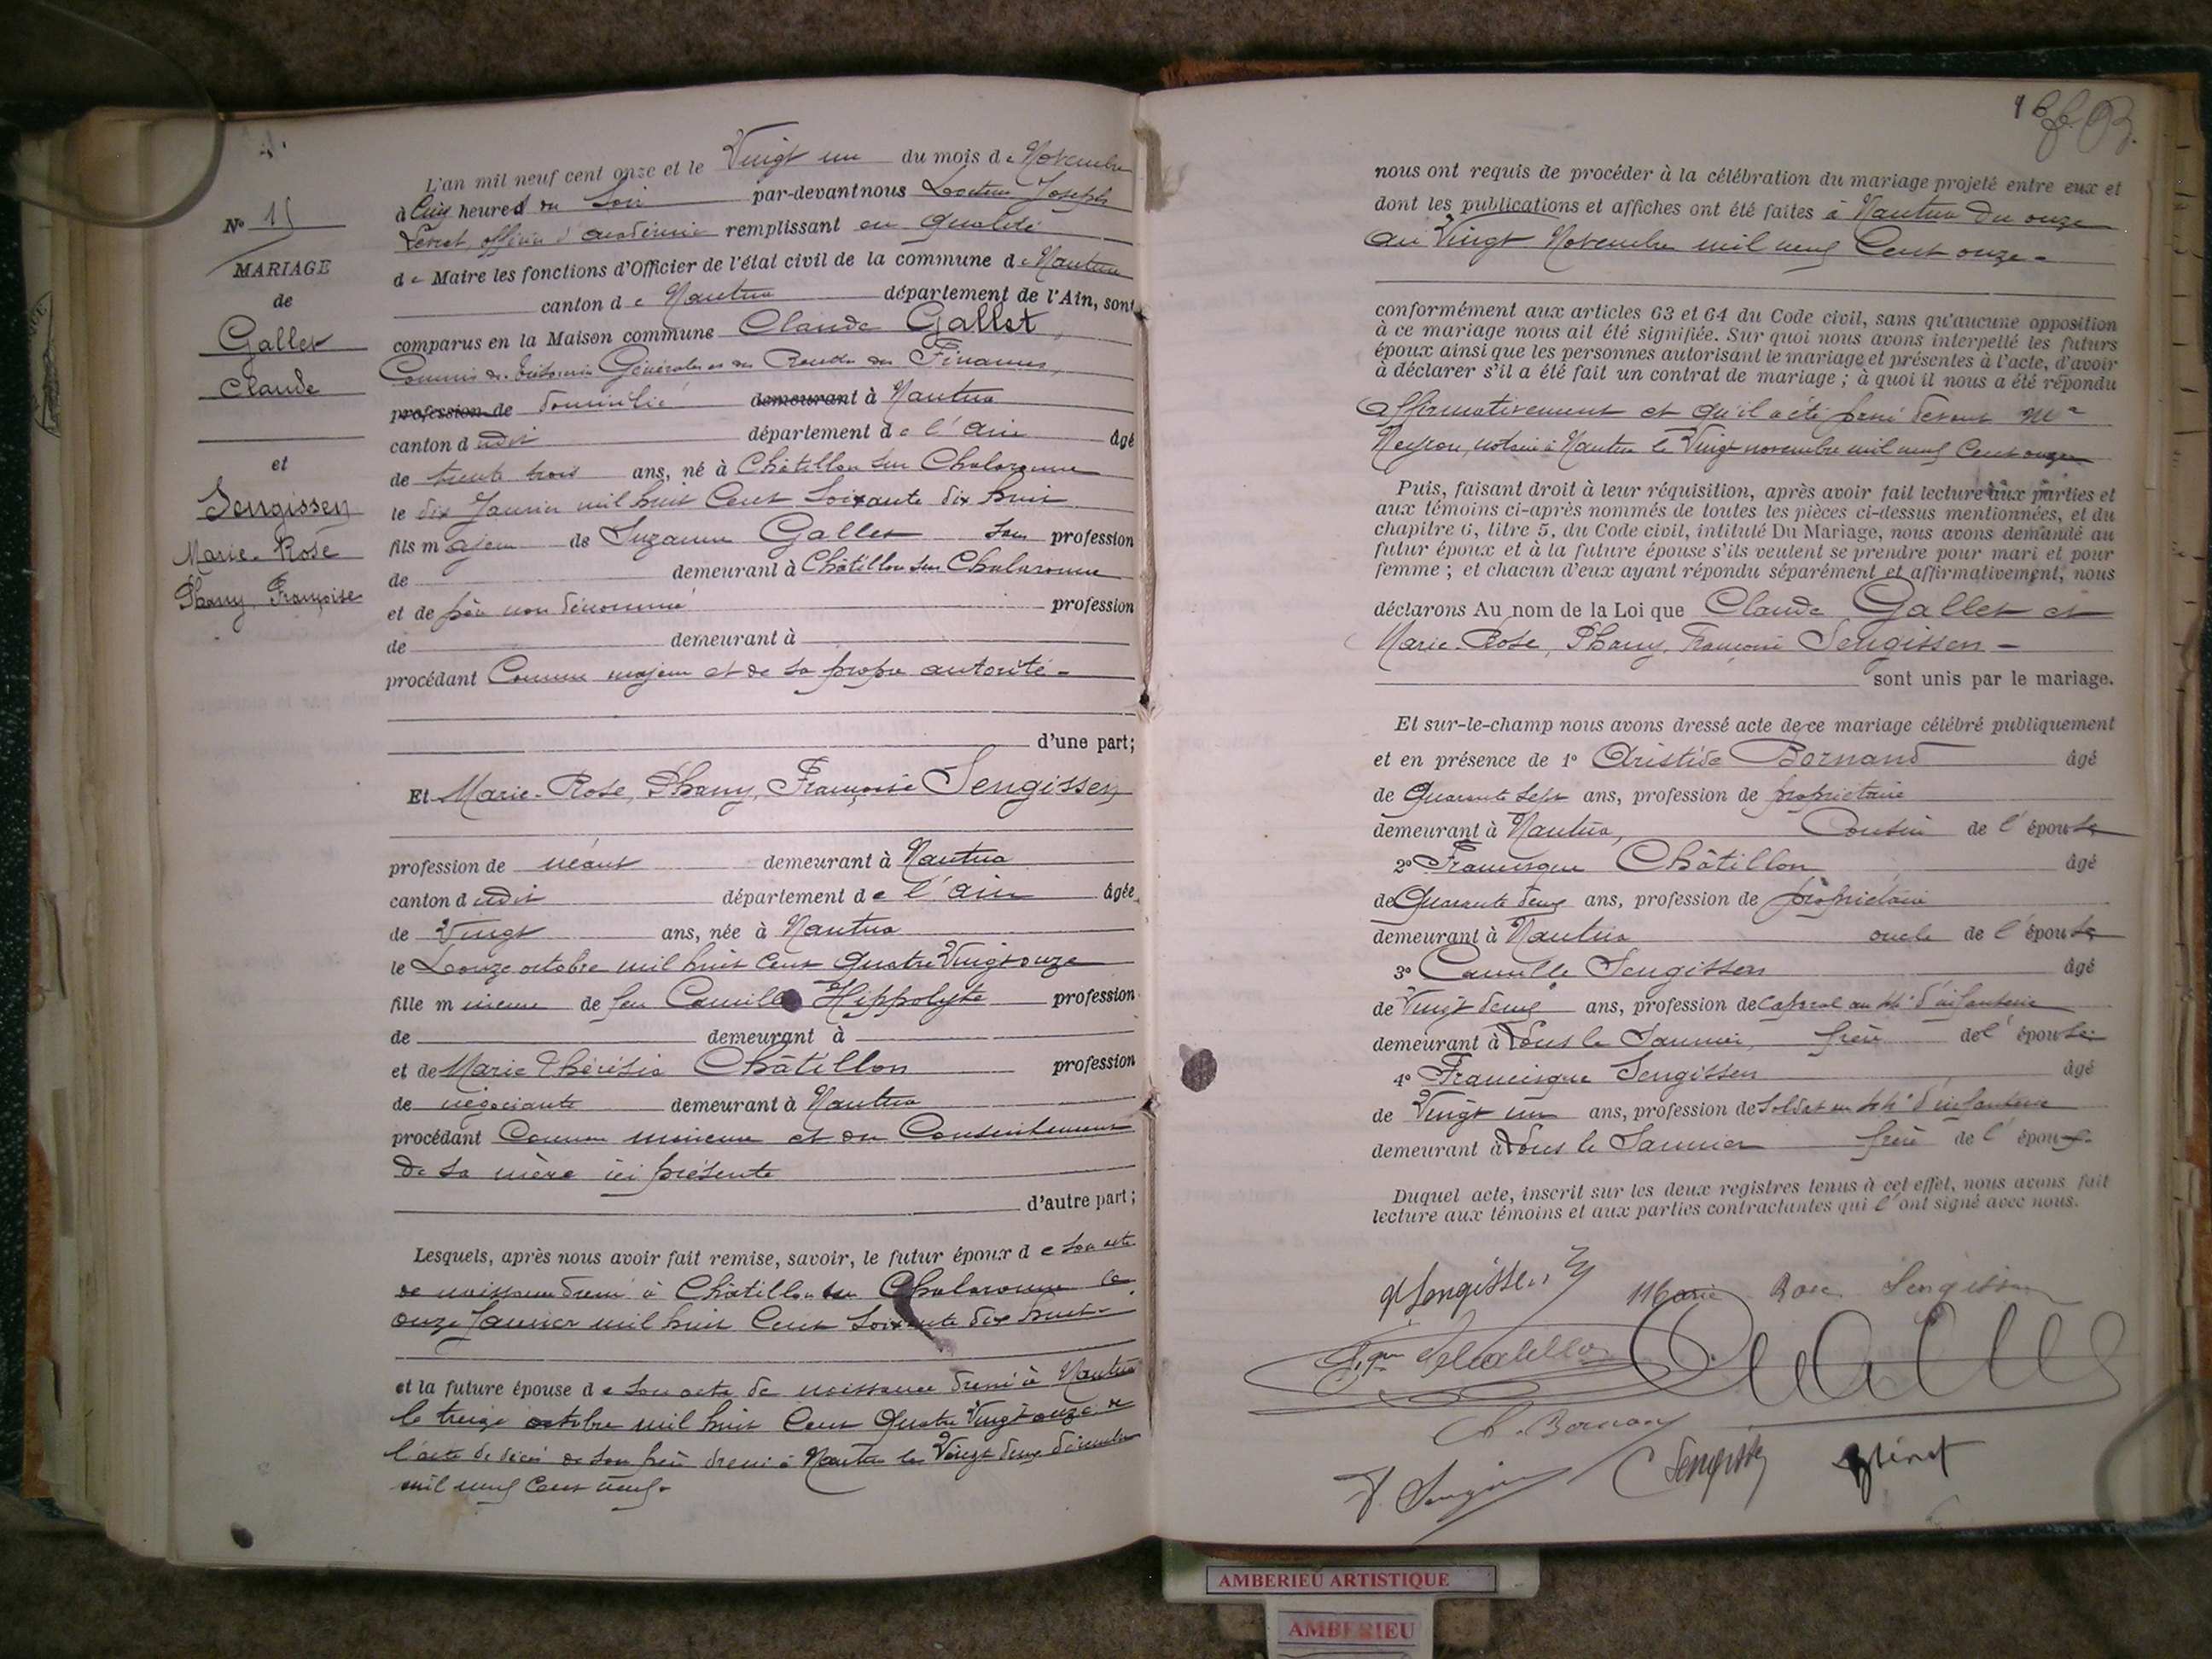 L'an mil neuf cent onze et le Vingt un du mois de Novembre
à Cinq heures du Soir par-devant nous Docteur Joseph
officier d'académie remplissant en qualité
de Maire les fonctions d'Officier de l'état civil de la commune de Nantua
canton de Nantua département de l'Ain, sont
comparus en la Maison commune Claude Gallet,
Commis des Trésoreries Générales et des Recettes des Finances,
profession de domicilié demeurant à Nantua
canton dudit département de l'Ain âgé
de trente trois ans, né à Châtillon sur Chalaronne
le dix Janvier mil huit Cent Soixante dix huit
fils majeur de Suzanne Gallet sans profession
de demeurant à Châtillon sur Chalaronne
et de père non dénommé profession
de demeurant à
procédant Comme majeur et de sa propre autorité -
d'une part;
N° 15
MARIAGE
de
Gallet
Claude
et
Sengissen
Marie-Rose
Phany Françoise
Et Marie-Rose, Phany, Françoise Sengissen
profession de néant demeurant à Nantua
canton dudit département de l'Ain âgée
de Vingt ans, née à Nantua
le Douze octobre mil huit Cent Quatre Vingt onze
fille mineure de feu Camille Hippolyte profession
de demeurant à
et de Marie Thérésia Châtillon profession
de négociante demeurant à Nantua
procédant Comme mineure et du Consentement
de sa mère ici présente
d'autre part;
Lesquels, après nous avoir fait remise, savoir, le futur époux de son acte
de naissance dressé à Châtillon sur Chalaronne le
onze Janvier mil huit Cent Soixante dix huit -
et la future épouse de son acte de naissance dressé à Nantua
le treize octobre mil huit Cent Quatre Vingt onze et
l'acte de décès de son père dressé à Nantua le Vingt deux décembre
mil neuf Cent neuf -
nous ont requis de procéder à la célébration du mariage projeté entre eux et
dont les publications et affiches ont été faites à Nantua du onze
au Vingt Novembre mil neuf Cent onze -
conformément aux articles 63 et 64 du Code civil, sans qu'aucune opposition
à ce mariage nous ait été signifiée. Sur quoi nous avons interpellé les futurs
époux ainsi que les personnes autorisant le mariage et présentes à l'acte, d'avoir
à déclarer s'il a été fait un contrat de mariage ; à quoi il nous a été répondu
Affirmativement et qu'il a été passé devant Me
Neyron, notaire à Nantua le Vingt novembre mil neuf Cent onze
Puis, faisant droit à leur réquisition, après avoir fait lecture aux parties et
aux témoins ci-après nommés de toutes les pièces ci-dessus mentionnées, et du
chapitre 6, titre 5, du Code civil, intitulé Du Mariage, nous avons demandé au
futur époux et à la future épouse s'ils veulent se prendre pour mari et pour
femme ; et chacun d'eux ayant répondu séparément et affirmativement, nous
déclarons Au nom de la Loi que Claude Gallet et
Marie-Rose, Phany, Françoise Sengissen -
sont unis par le mariage.
Et sur-le-champ nous avons dressé acte de ce mariage célébré publiquement
et en présence de 1° Aristide Bernand âgé
de Quarante Sept ans, profession de propriétaire
demeurant à Nantua, Cousin de l'épouse
2° Francisque Châtillon âgé
de Quarante deux ans, profession de propriétaire
demeurant à Nantua oncle de l'épouse
3° Camille Sengissen âgé
de Vingt deux ans, profession de Caporal au 44e d'infanterie
demeurant à Lons le Saunier, frère de l'épouse
4° Francisque Sengissen âgé
de Vingt un ans, profession de Soldat au 44e d'infanterie
demeurant à Lons le Saunier frère de l'épouse
Duquel acte, inscrit sur les deux registres tenus à cet effet, nous avons fait
lecture aux témoins et aux parties contractantes qui l'ont signé avec nous.
Sengissen Marie Rose Sengissen
Châtillon
C Sengissen
AMBERIEU ARTISTIQUE
AMBERIEU